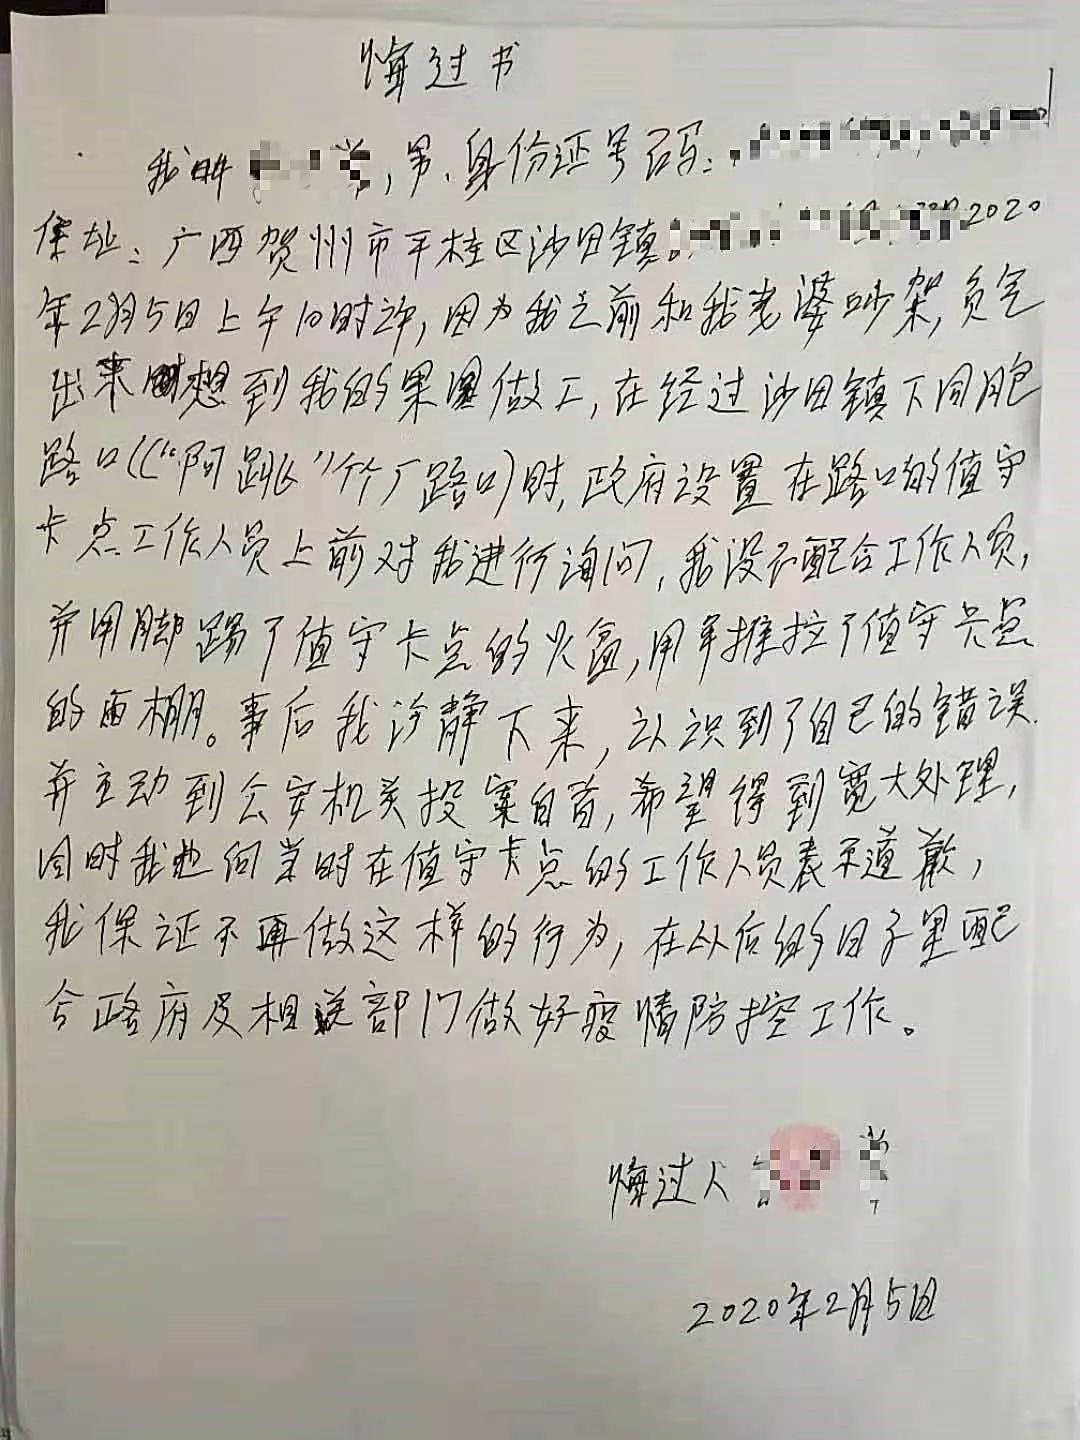 悔过书
我叫,男,身份证号码:
住址:广西贺州市平桂区沙田镇 2020
年2月5日上午10时许,因为我之前和我老婆吵架,负气
出来想到我的果园做工,在经过沙田镇下同胞
路口(("阿跳"竹厂路口)时,政府设置在路口的值守
卡点工作人员上前对我进行询问,我没配合工作人员,
并用脚踢了值守卡点的火盆,用手推拉了值守卡点
的雨棚。事后我冷静下来,认识到了自己的错误.
并主动到公安机关投案自首,希望得到宽大处理,
同时我也向当时在值守卡点的工作人员表示道歉,
我保证不再做这样的行为,在以后的日子里配
合政府及相关部门做好疫情防控工作。
悔过人
2020年2月5日